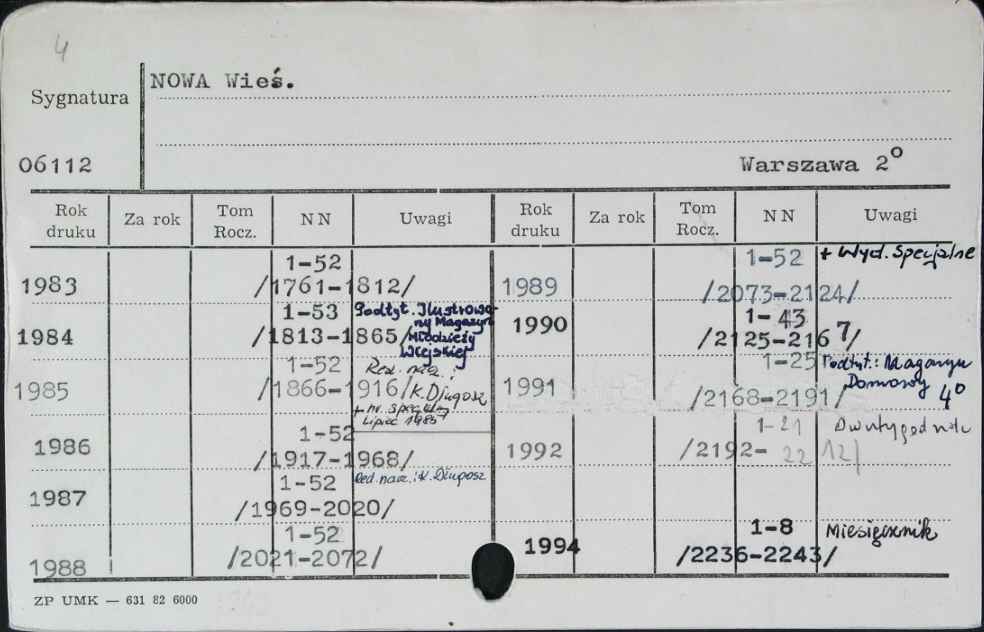 4
NOWA Wieś.
Sygnatura
06112
Warszawa 2°
Rok druku Za rok Tom Rocz. NN Uwagi Rok druku Za rok Tom Rocz. NN Uwagi
1-52
1983 /1761-1812/
1-53 Podtyt. Ilustrowany Magazyn Młodzieży Wiejskiej
1984 /1813-1865/
1-52 Red. nacz.: K. Długosz
1985 /1866-1916/
+ nr. specjal. Lipiec 1985
1-52
1986 /1917-1968/
1-52 Red. nacz.: K. Długosz
1987 /1969-2020/
1-52
1988 /2021-2072/
1-52 + Wyd. Specjalne
1989 /2073-2124/
1-43
1990 /2125-2167/
1-25 Podtyt.: Magazyn Domowy 4°
1991 /2168-2191/
1-21 Dwutygodnik
1992 /2192-2212/
1-8 Miesięcznik
1994 /2236-2243/
ZP UMK — 631 82 6000